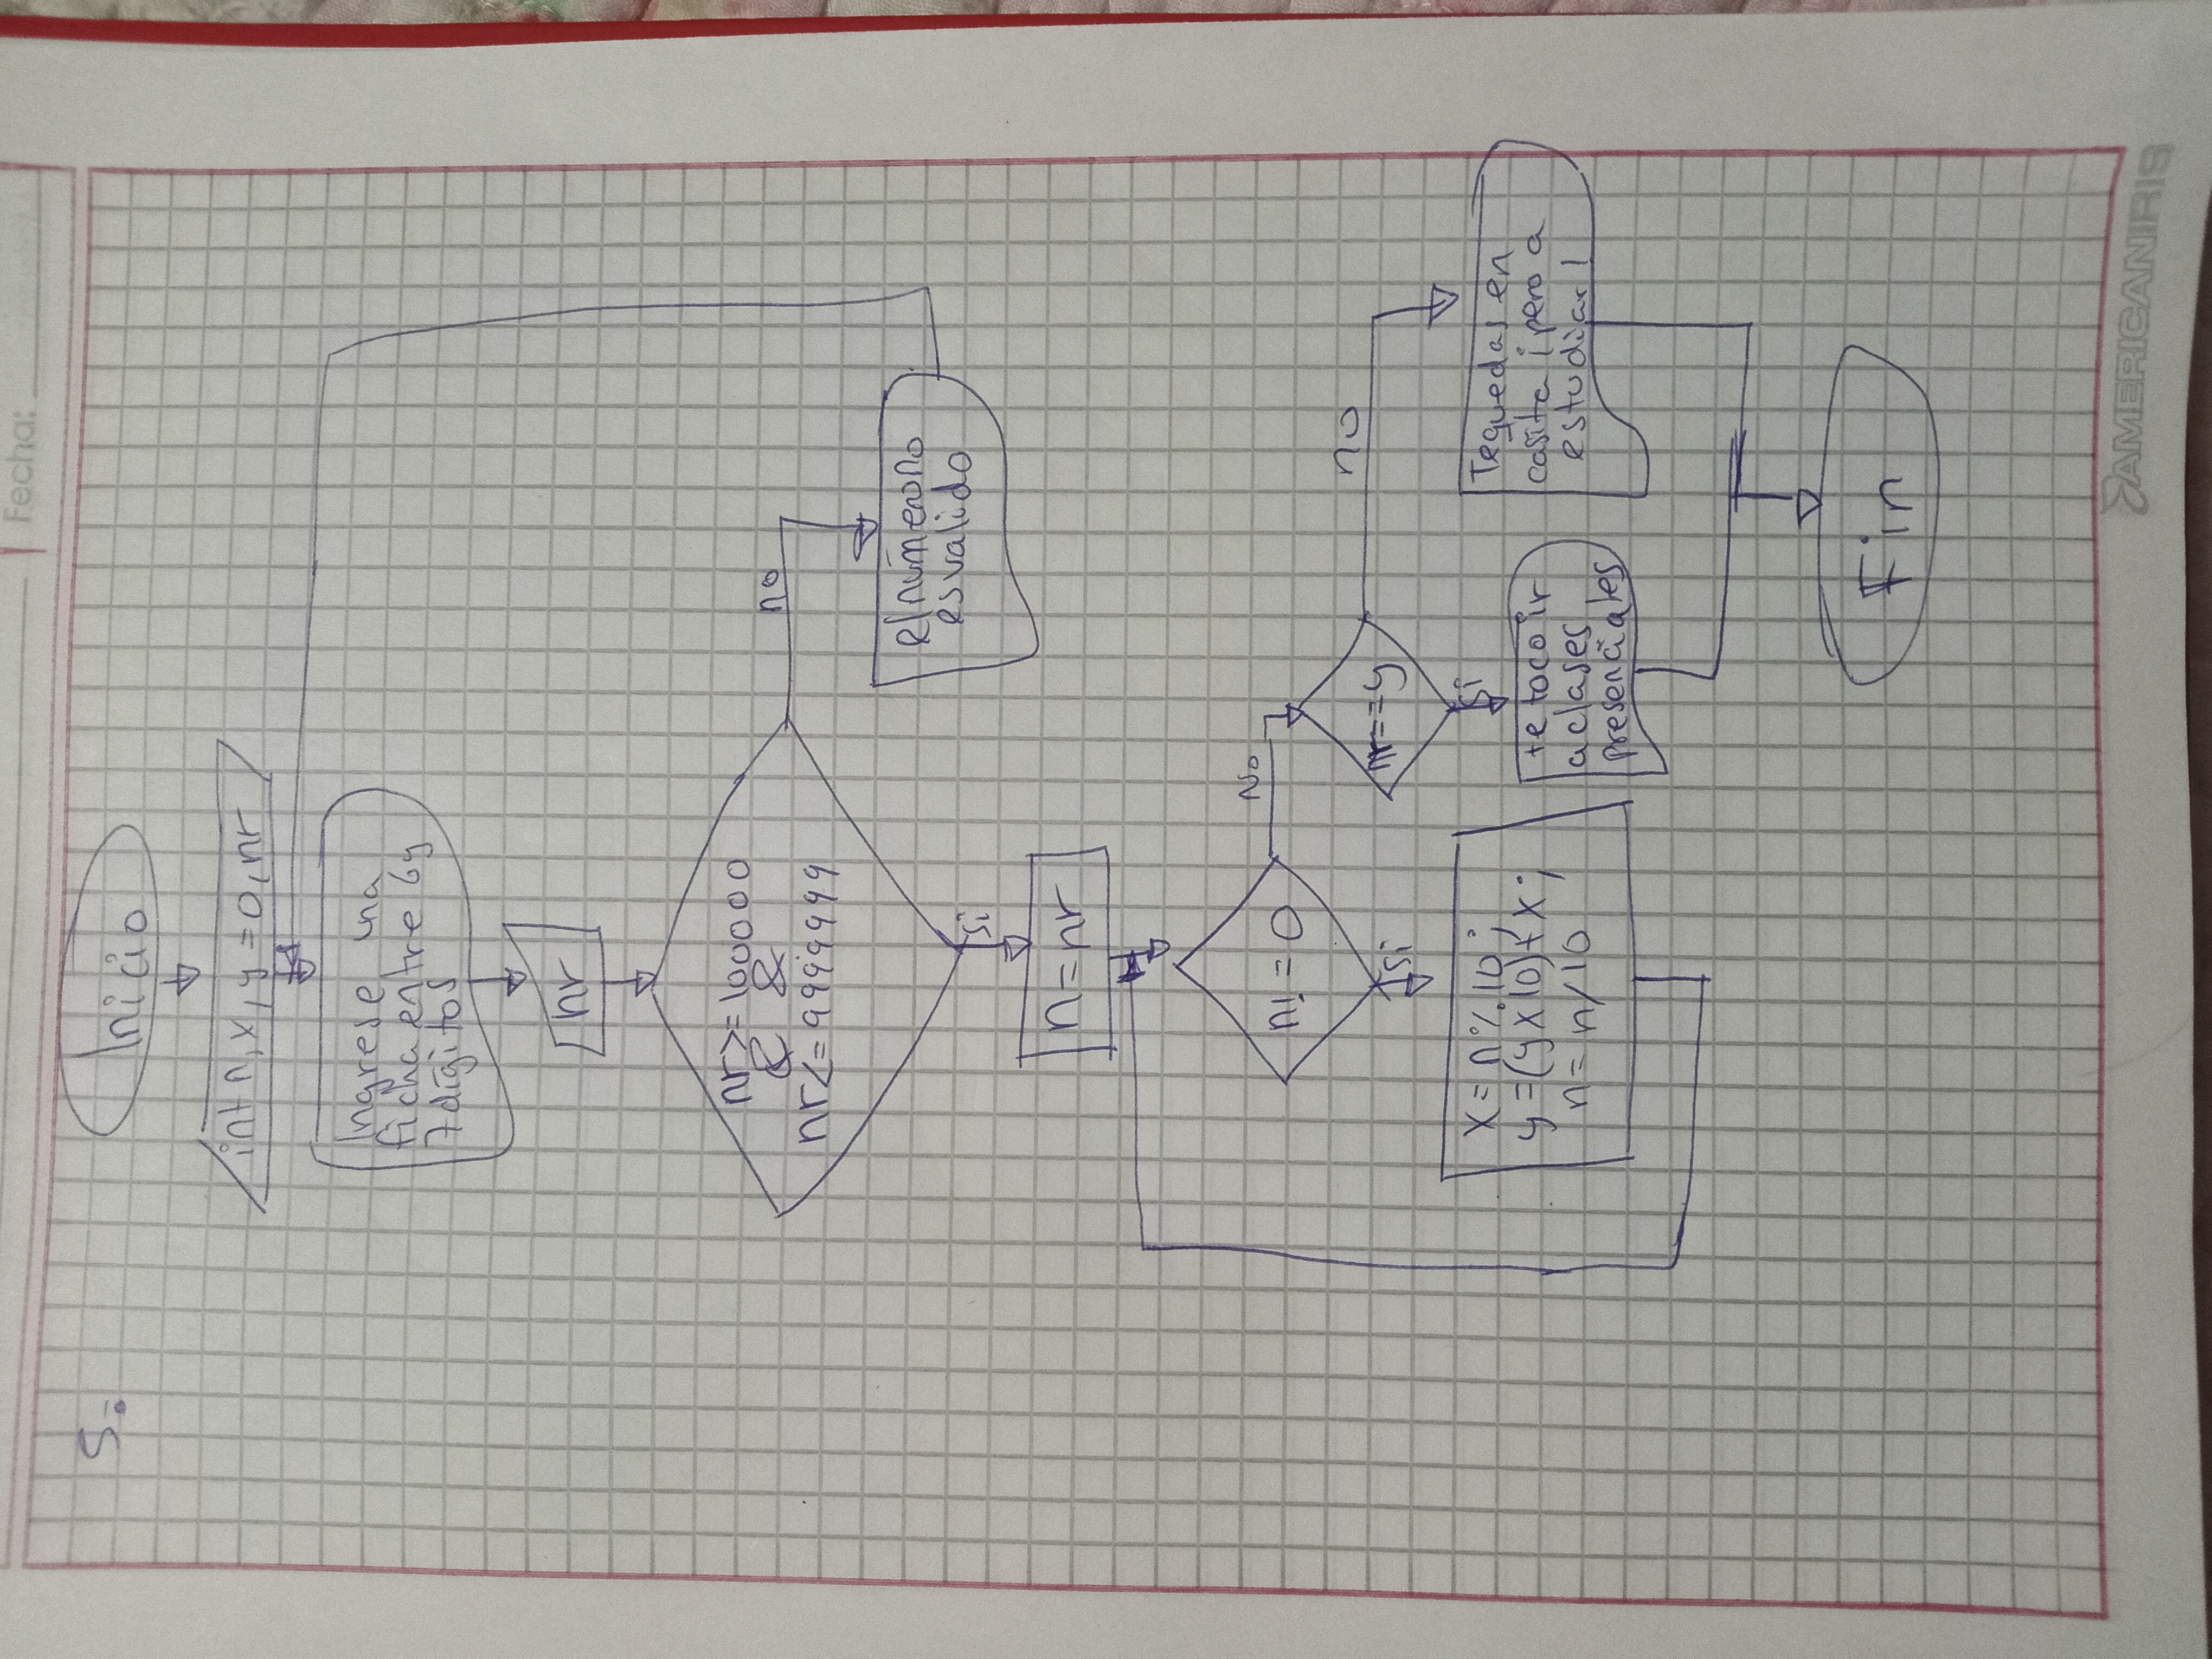 Fecha:
5.
Inicio
int n, x, y = 0, nr
Ingrese una
ficha entre 6 y
7 digitos
nr
nr >= 100000
& &
nr <= 9999999
no
el número no
es valido
si
n = nr
n! = 0
No
nr == y
no
si
si
x = n % 10;
y = (y x 10) + x;
n = n / 10
te toco ir
a clases
presenciales
Te quedas en
casita ¡pero a
estudiar!
Fin
AMERICANIRIS